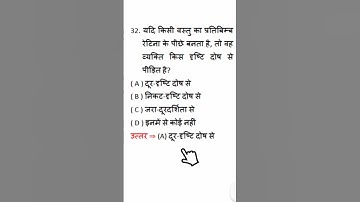 32. यदि किसी वस्तु का प्रतिबिम्ब
रेटिना के पीछे बनता है, तो वह
व्यक्ति किस दृष्टि दोष से
पीड़ित है?
( A ) दूर-दृष्टि दोष से
( B ) निकट-दृष्टि दोष से
( C ) जरा-दूरदर्शिता से
( D ) इनमें से कोई नहीं
उत्तर ⇒ (A) दूर-दृष्टि दोष से